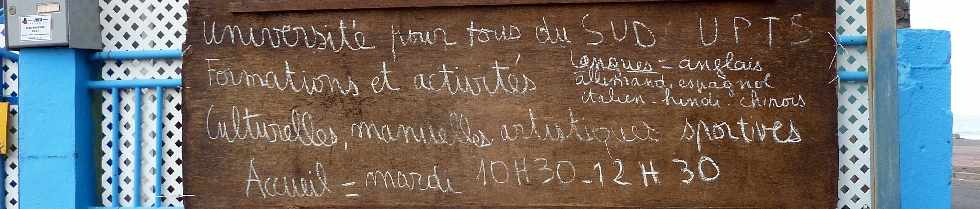 Université pour tous du SUD UPTS
Formations et activités
Langues = anglais
allemand, espagnol
italien - hindi - chinois
Culturelles, manuelles artistiques sportives
Accueil = mardi 10H30-12H30